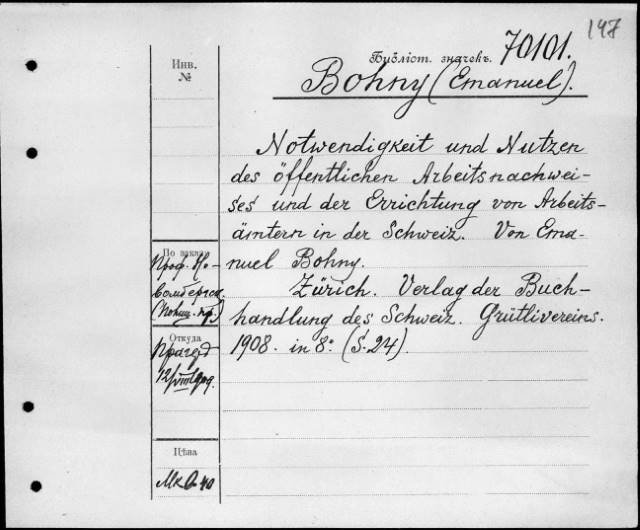 147
70101.
Библіот. значекъ.
Инв.
№
Bohny (Emanuel).
Notwendigkeit und Nutzen
des öffentlichen Arbeitsnachwei-
ses und der Errichtung von Arbeits-
ämtern in der Schweiz. Von Ema-
nuel Bohny.
Zürich. Verlag der Buch-
handlung des Schweiz. Grütlivereins.
1908. in 8: (S. 24).
По заказу
Проф.
Откуда
12/VIII 909.
Цѣна
Mk 0-40